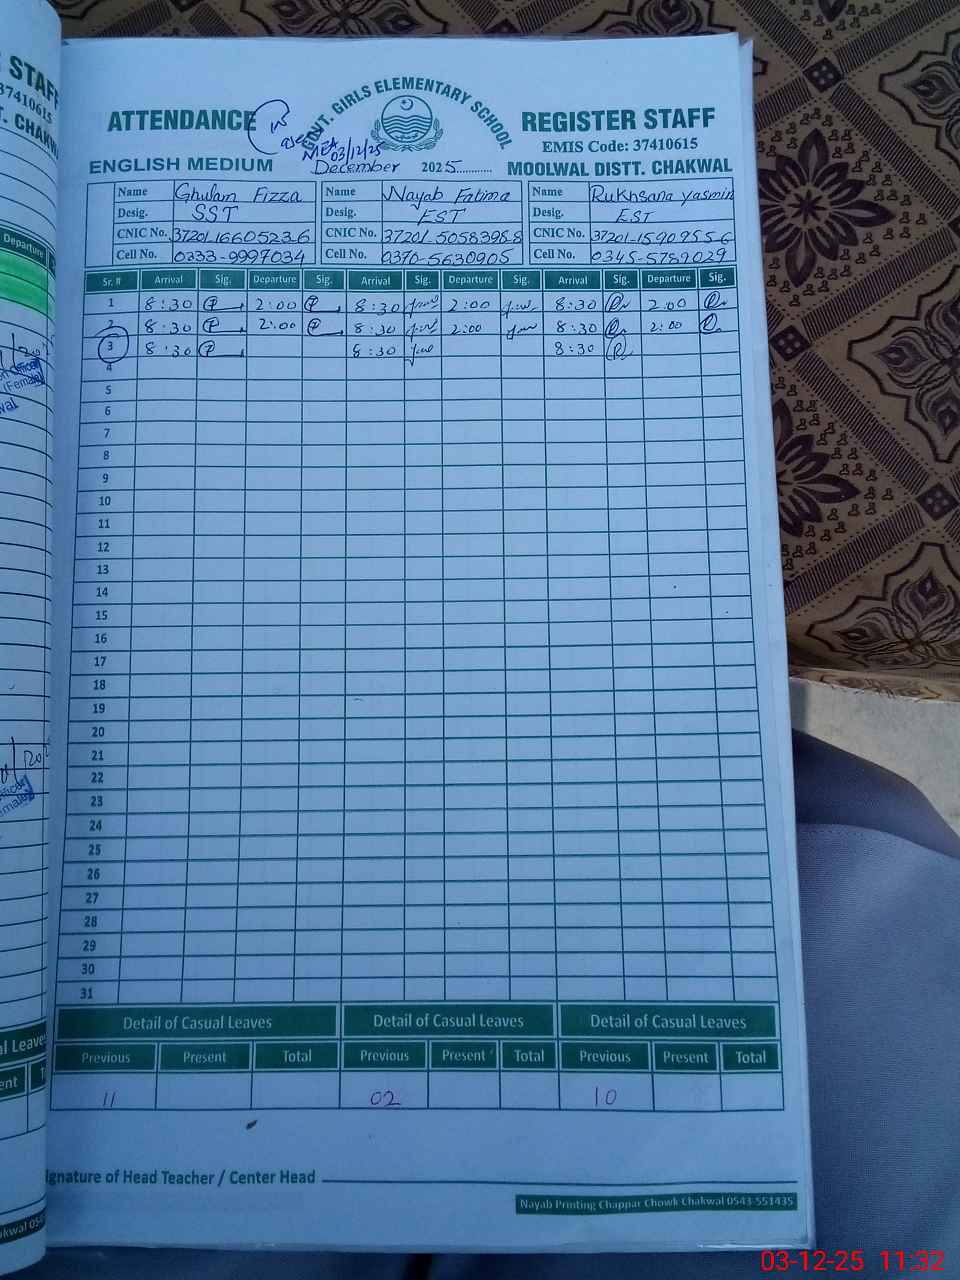 GOVT. GIRLS ELEMENTARY SCHOOL
ATTENDANCE REGISTER STAFF
EMIS Code: 37410615
MEA 03/12/25
ENGLISH MEDIUM December 2025 MOOLWAL DISTT. CHAKWAL
Name Ghulam Fizza Name Nayab Fatima Name Rukhsana yasmin
Desig. SST Desig. EST Desig. EST
CNIC No. 37201-1660523-6 CNIC No. 37201-5058398-8 CNIC No. 37201-1590955-6
Cell No. 0333-9997034 Cell No. 0370-5630905 Cell No. 0345-5789029
Sr. # Arrival Sig. Departure Sig. Arrival Sig. Departure Sig. Arrival Sig. Departure Sig.
1 8:30 2:00 8:30 2:00 8:30 2:00
2 8:30 2:00 8:30 2:00 8:30 2:00
3 8:30 8:30 8:30
4
5
6
7
8
9
10
11
12
13
14
15
16
17
18
19
20
21
22
23
24
25
26
27
28
29
30
31
Detail of Casual Leaves Detail of Casual Leaves Detail of Casual Leaves
Previous Present Total Previous Present Total Previous Present Total
11 02 10
Signature of Head Teacher / Center Head
Nayab Printing Chappar Chowk Chakwal 0543-551435
03-12-25 11:32